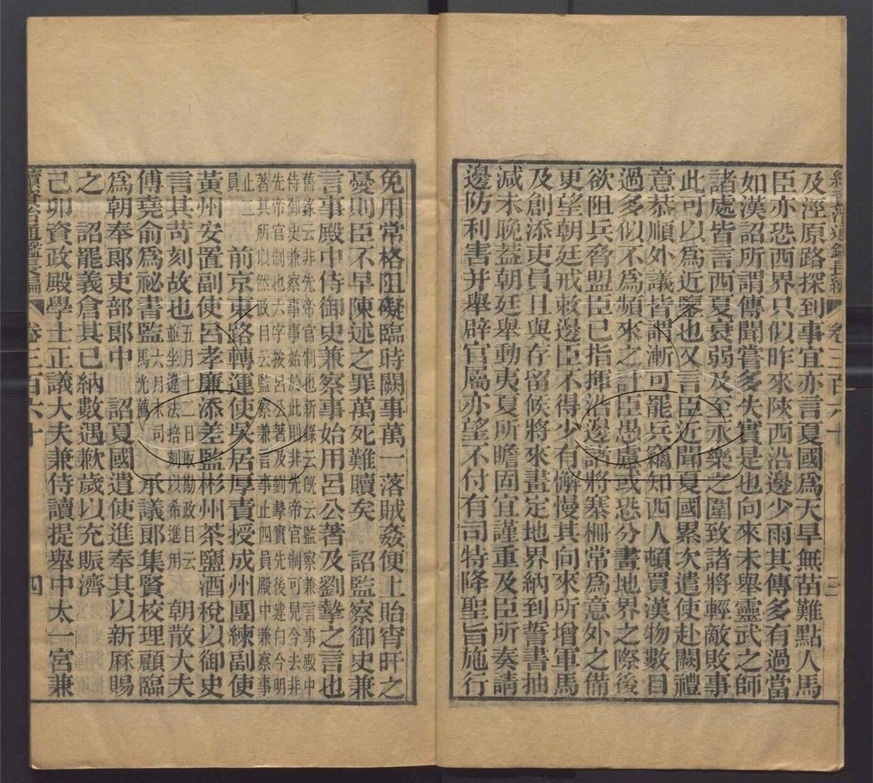 及涇原路探到事宜亦言夏國爲天旱無苗難點人馬
臣亦恐西界只似昨來陝西沿邊少雨其傳多有過當
如漢詔所謂傳聞嘗多失實是也向來未舉靈武之師
諸處皆言西夏衰弱及至永樂之圍致諸將輕敵敗事
此可以爲近鑒也又言臣近聞夏國累次遣使赴闕禮
意恭順外議皆謂漸可罷兵竊知西人頓買漢物數目
過多似不爲頻來之計臣愚慮或恐分畫地界之際後
欲阻兵脅盟臣已指揮沿邊諸將寨柵常爲意外之備
更望朝廷戒敕邊臣不得少有懈慢其向來所增軍馬
及創添吏員且與存留候將來畫定地界納到誓書抽
減未晚蓋朝廷舉動夷夏所瞻固宜謹重及臣所奏請
邊防利害并舉辟官屬亦望不付有司特降聖旨施行
免用常格阻礙臨時闕事萬一落賊姦便上貽宵旰之
憂則臣不早陳述之罪萬死難贖矣 詔監察御史兼
言事殿中侍御史兼察事始用呂公著及劉摯之言也
舊錄云非先帝官制也新錄云旣云監察兼言事殿中
侍御史兼察事事始於此則非先帝官制可見今去非
先帝官制也六字按呂公著及劉摯實先後建白今明
著其所以然政目云監察兼言事止四員殿中兼察事
止二
員
前京東路轉運使吳居厚責授成州團練副使
黃州安置副使呂孝廉添差監彬州茶鹽酒稅以御史
言其苛刻故也
五月十二日取勘政目云
並坐進法掊刻以希進用
朝散大夫
傅堯俞爲祕書監
六月末司
馬光薦
承議郎集賢校理顧臨
爲朝奉郎吏部郎中 詔夏國遣使進奉其以新麻賜
之 詔罷義倉其已納數遇歉歲以充賑濟
己卯資政殿學士正議大夫兼侍讀提舉中太一宮兼
續資治通鑑長編
卷三百六十
四